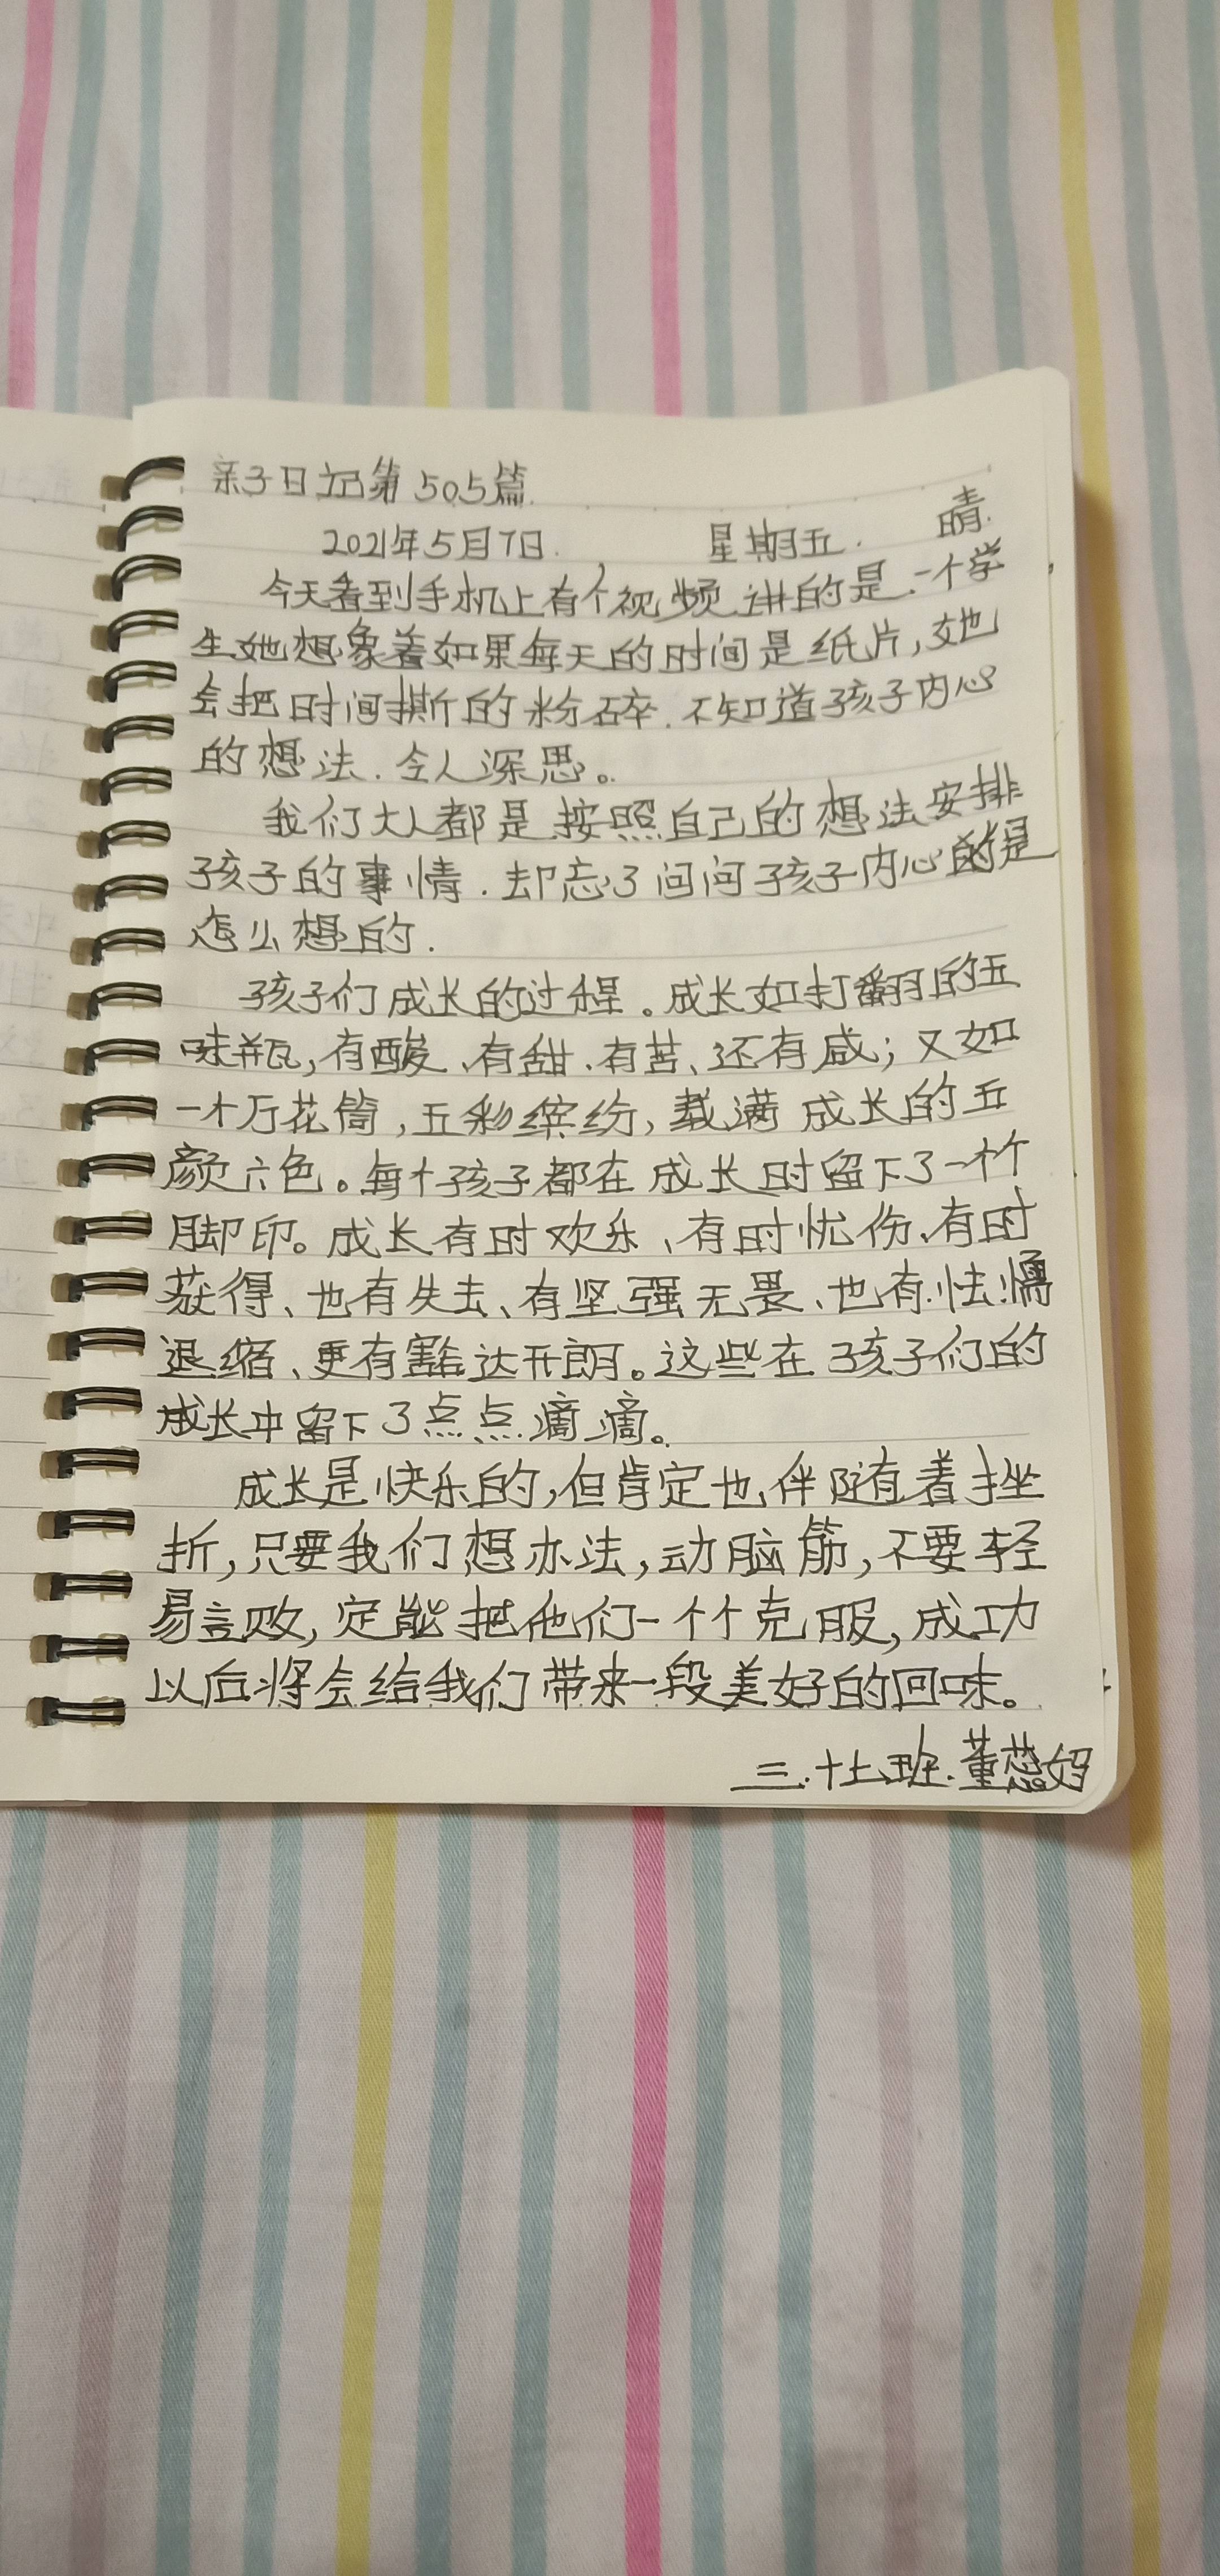 亲子日记第505篇
2021年5月7日. 星期五. 晴.
今天看到手机上有个视频,讲的是.一个学
生她想象着如果每天的时间是纸片,她
会把时间撕的粉碎.不知道孩子内心
的想法.令人深思。
我们大人都是按照自己的想法安排
孩子的事情.却忘了问问孩子内心的是
怎么想的.
孩子们成长的过程。成长如打翻的五
味瓶,有酸、有甜.有苦、还有咸;又如
一个万花筒,五彩缤纷,载满成长的五
颜六色。每个孩子都在成长时留下了一个个
脚印。成长有时欢乐、有时忧伤、有时
获得、也有失去、有坚强无畏、也有怯懦
退缩、更有豁达开朗。这些在孩子们的
成长中留下了点点滴滴。
成长是快乐的,但肯定也伴随着挫
折,只要我们想办法,动脑筋,不要轻
易言败,定能把他们一个个克服,成功
以后将会给我们带来一段美好的回味。
三.十七班.董蕊妈